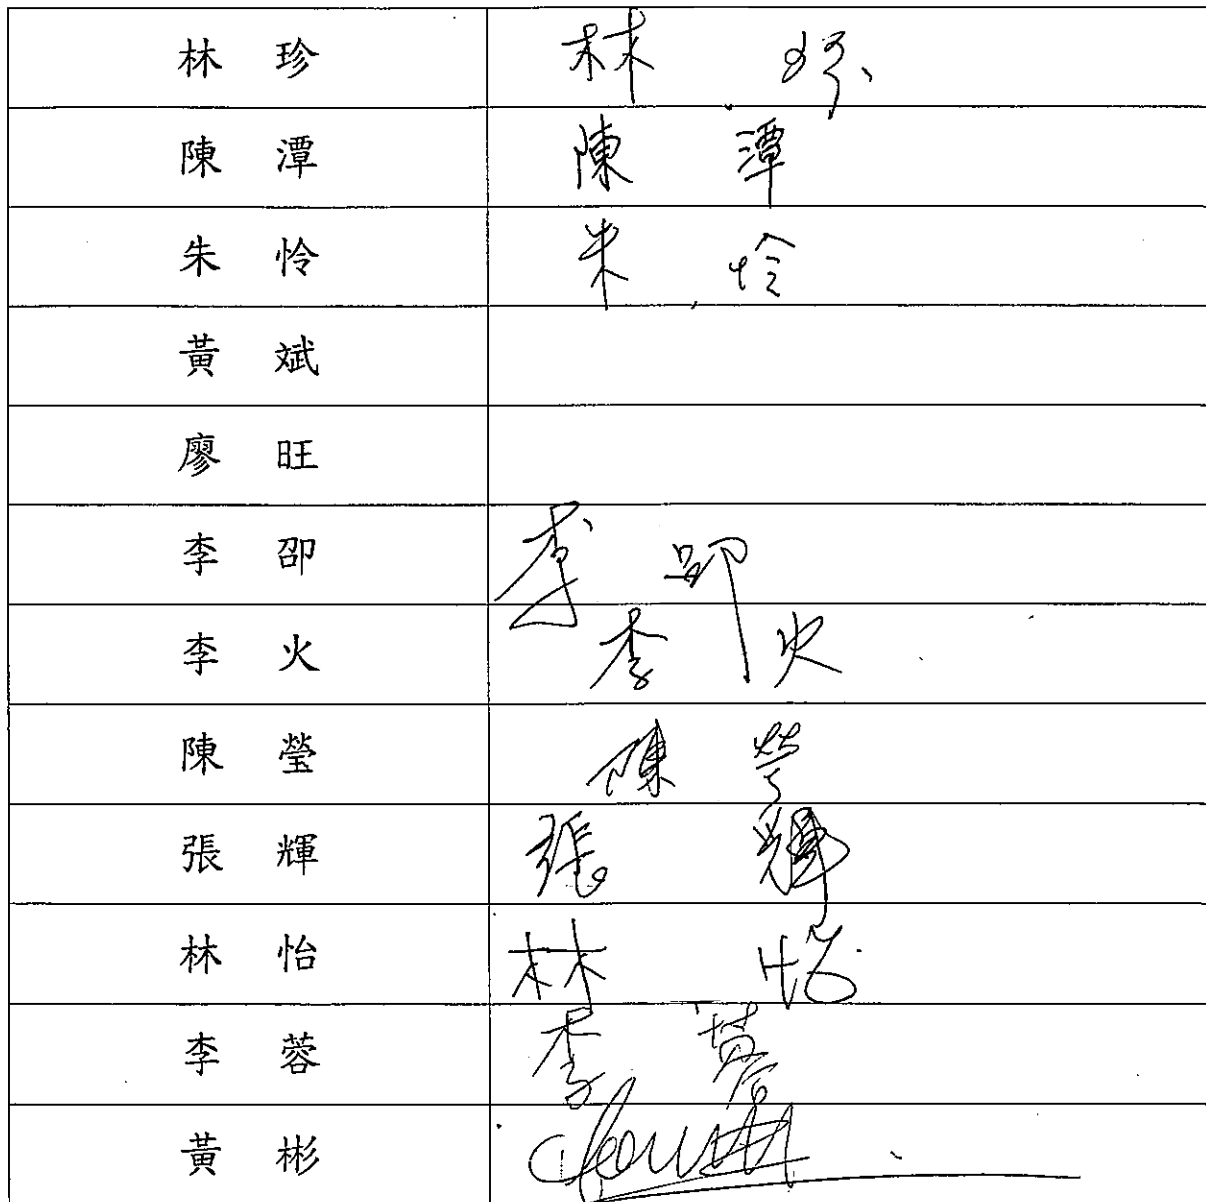 林 珍 林 珍
陳 潭 陳 潭
朱 怜 朱 怜
黃 斌
廖 旺
李 邵 李 邵
李 火 李 火
陳 瑩 陳 瑩
張 輝 張 輝
林 怡 林 怡
李 蓉 李 蓉
黃 彬